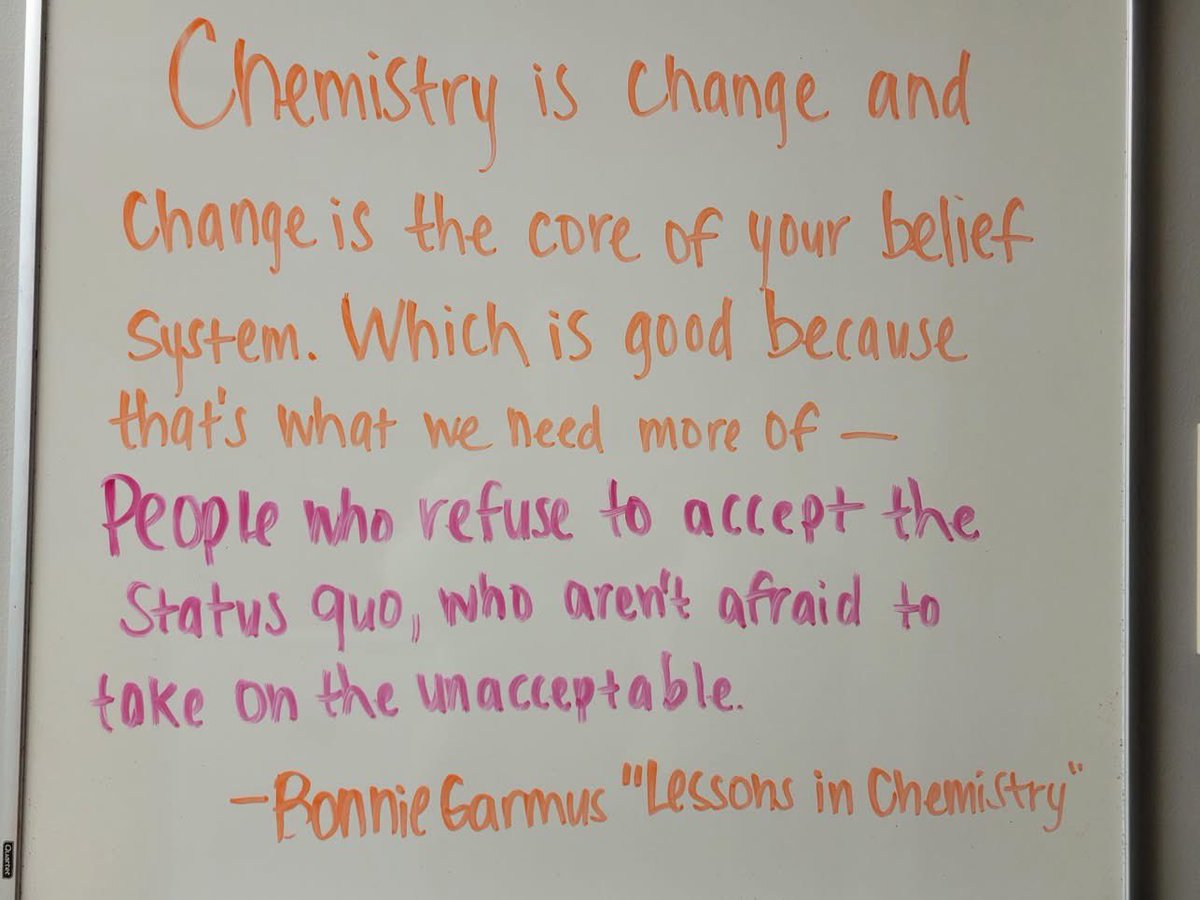 Chemistry is change and
change is the core of your belief
system. Which is good because
that's what we need more of —
People who refuse to accept the
status quo, who aren't afraid to
take on the unacceptable.
—Bonnie Garmus "Lessons in Chemistry"
Quartet